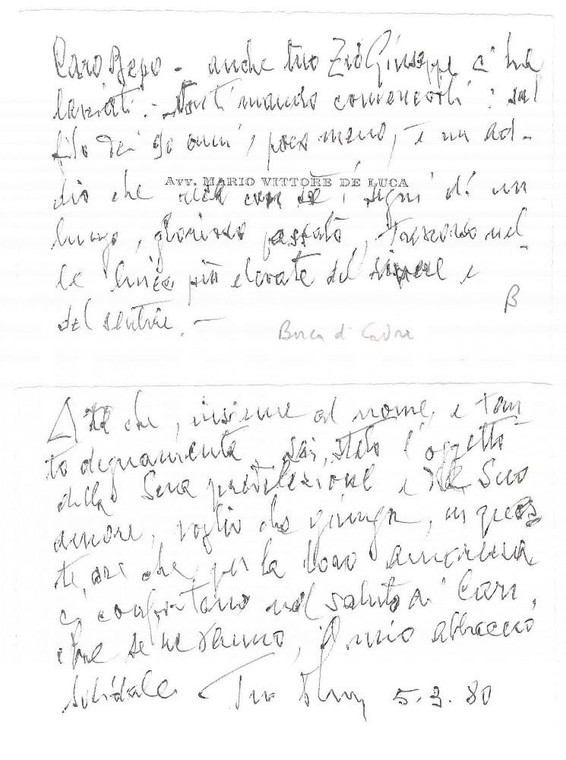 Caro Bepo - anche tuo Zio Giuseppe ci ha
lasciati. - convenevoli: sul
filo dei 90 anni, poco meno, è un ad-
AVV. MARIO VITTORE DE LUCA
dio che reca con sé i segni di un
lungo, glorioso passato, trascorso nel-
le linee più elevate del sapere e
del sentire. -
B
Borca di Cadore
A te che, insieme al nome, e tan
to degnamente, sei stato l'oggetto
della Sua predilezione e del Suo
amore, voglio che giunga, in ques
te ore che per la loro amarezza
ci confortano nel saluto ai Cari
che se ne vanno, il mio abbraccio
solidale. Tuo 5.3.80